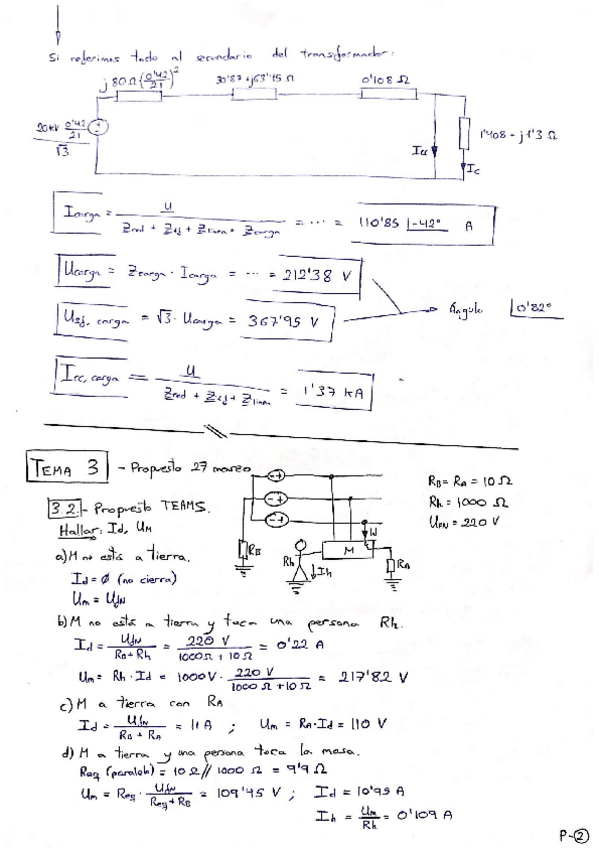 Si referimos todo al secundario del transformador:
j 80Ω (0'42/21)²
30'87 + j63'15 Ω
0'108 Ω
20kV 0'42/21
√3
1'408 - j1'3 Ω
Icc
Ic
Icarga = U / (Zred + Zcj + Zlinea + Zcarga) = ... = 110'85 |-42° A
Ucarga = Zcarga · Icarga = ... = 212'38 V
= √3 · Ucarga = 367'95 V
Ángulo |0'82°
Icc, carga = U / (Zred + Zcj + Zlinea) = 1'37 kA
TEMA 3 - Propuesto 27 marzo
3.2.- Propuesto TEAMS.
Hallar: Id, UM
RB = RA = 10 Ω
Rh = 1000 Ω
UFN = 220 V
RB
Rh
Ih
M
Id
RA
a) M no está a tierra.
Id = ∅ (no cierra)
Um = UfN
b) M no está a tierra y toca una persona Rh.
Id = UfN / (RB + Rh) = 220 V / (1000 Ω + 10 Ω) = 0'22 A
Um = Rh · Id = 1000 V · 220 V / (1000 Ω + 10 Ω) = 217'82 V
c) M a tierra con RA
Id = UfN / (RB + RA) = 11 A ; Um = RA · Id = 110 V
d) M a tierra y una persona toca la masa.
Req (paralelo) = 10 Ω // 1000 Ω = 9'9 Ω
Um = Req · UfN / (Req + RB) = 109'45 V ; Id = 10'95 A
Ih = Um / Rh = 0'109 A
P-②